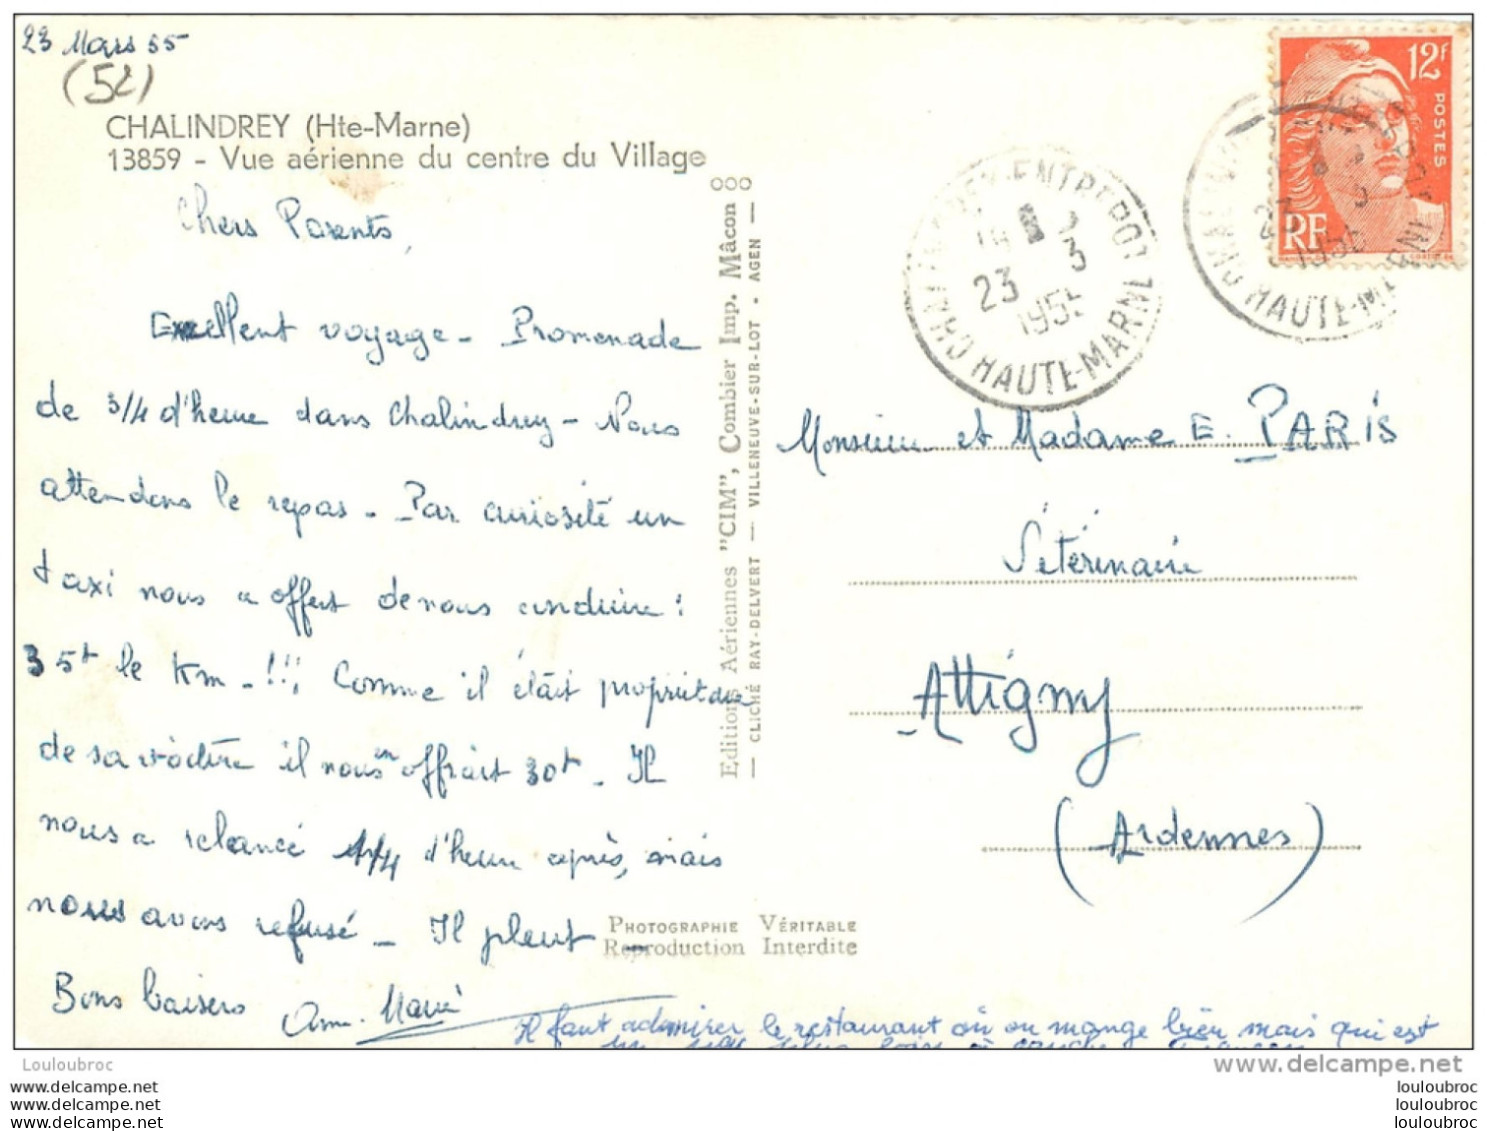 23 Mars 55
(52)
CHALINDREY (Hte-Marne)
13859 - Vue aérienne du centre du Village
Chers Parents,
Excellent voyage - Promenade
de 3/4 d'heure dans Chalindrey - Nous
attendons le repas - Par curiosité un
taxi nous a offert de nous conduire :
35f le km - !!!, Comme il était propriétaire
de sa voiture il nous en offrait 30f - Il
nous a relancé 1/4 d'heure après, mais
nous avons refusé - Il pleut
Bons baisers Anne-Marie
Il faut admirer le restaurant où on mange bien mais qui est
Editions Aériennes "CIM", Combier Imp. Mâcon
— CLICHÉ RAY-DELVERT — VILLENEUVE-SUR-LOT - AGEN —
PHOTOGRAPHIE VÉRITABLE
Reproduction Interdite
12F
POSTES
RF
CHALINDREY-ENTREPOT
23 3
1955
HAUTE-MARNE
23 3
1955
HAUTE-MARNE
Monsieur et Madame E. PARIS
Vétérinaire
Attigny
(Ardennes)
Louloubroc
delcampe.net
louloubroc
louloubroc
louloubroc
louloubroc
louloubroc
louloubroc